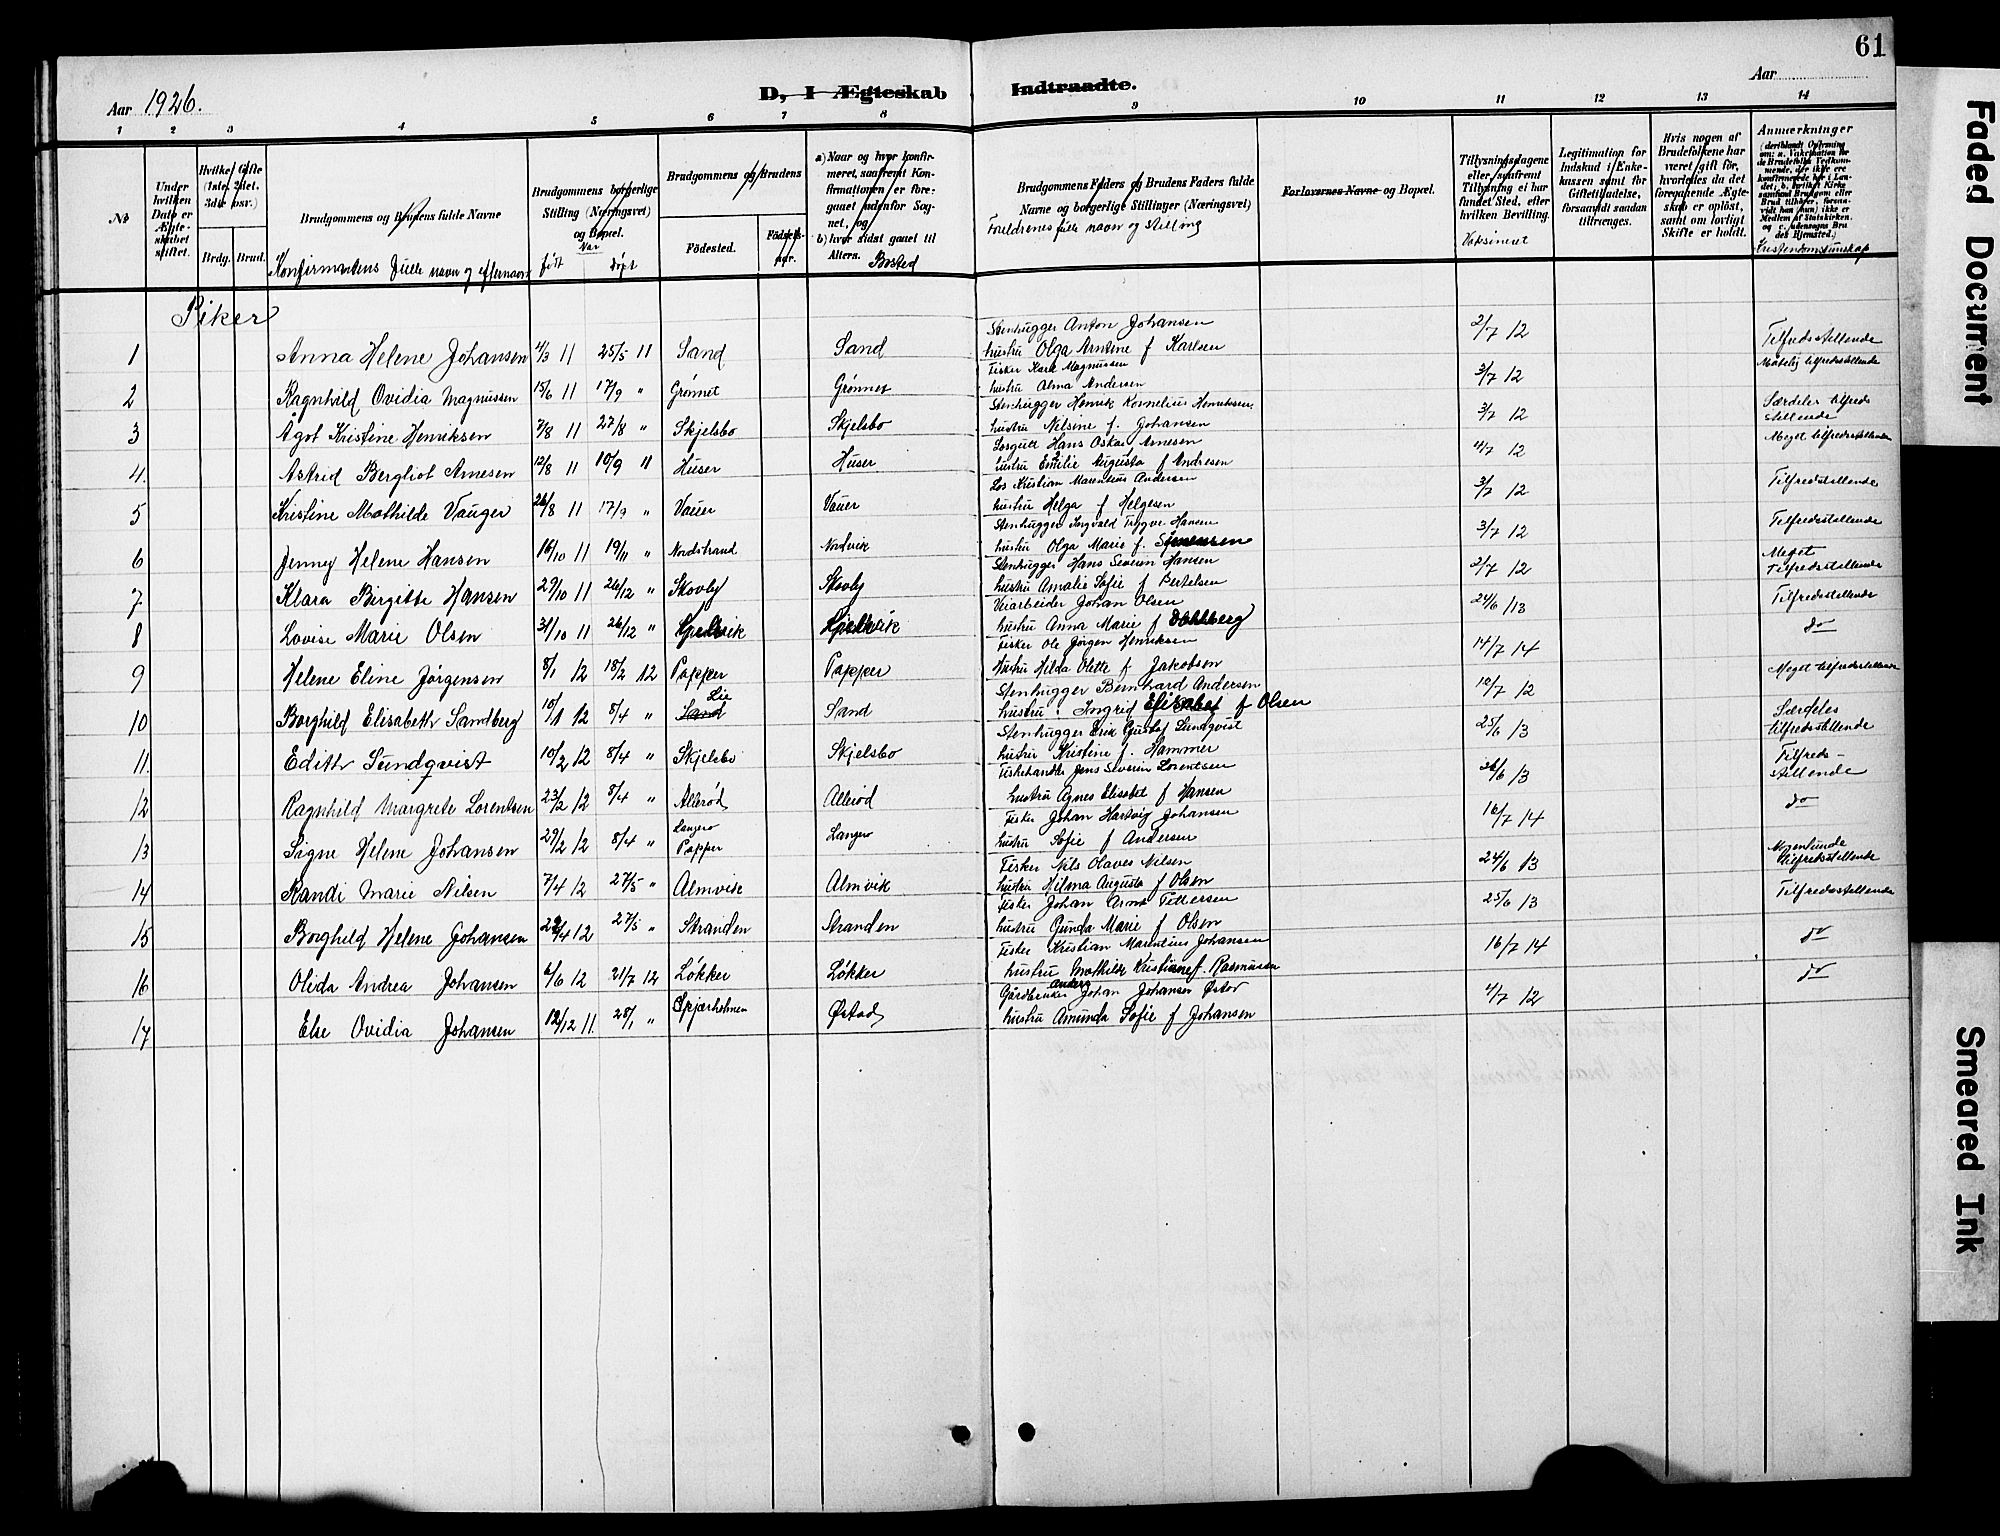 61
Aar 1926.
D, I Ægteskab Indtraadte.
Aar
1 2 3 4 5 6 7 8 9 10 11 12 13 14
No
Under hvilken Dato er Ægteskabet stiftet.
Hvilke Gifte (1ste, 2det, 3die osv.)
Brdg. Brud.
Brudgommens og Brudens fulde Navne
Konfirmantens fulle navn og efternavn
Brudgommens borgerlige Stilling (Næringsvei) og Bopæl.
Når
født døpt
Brudgommens og Brudens
Födested. Födselsaar.
a) Naar og hvor konfirmeret, saafremt Konfirmationen er foregaaet udenfor Sognet, og
b) hvor sidst gaaet til Alters.
Bosted
Brudgommens Faders og Brudens Faders fulde Navne og borgerlige Stillinger (Næringsvei)
Foreldrenes fulle navn og stilling
Forlovernes Navne og Bopæl.
Tillysningsdagene eller saafremt Tillysning ei har fundet Sted, efter hvilken Bevilling.
Vaksineret
Legitimation for Indskud i Enkekassen samt for Giftetilladelse, forsaavidt saadan tiltrænges.
Hvis nogen af Brudefolkene har været gift før, hvorledes da det foregaaende Ægteskab er oplöst, samt om lovligt Skifte er holdt.
Anmærkninger
Kristendomskunskap
Piker
1 Anna Helene Johansen 4/3 11 25/5 11 Sand Sand Stenhugger Anton Johansen hustru Olga Arntine f Karlsen 2/7 12 Tilfredsstellende
2 Ragnhild Ovidia Magnussen 15/6 11 17/9 " Grønnet Grønnet Fisker Karl Magnussen hustru Alma Andersen 3/7 12 Måtelig tilfredsstellende
3 Ågot Kristine Henriksen 7/8 11 27/8 " Skjelsbo Skjelsbo Stenhugger Henrik Kornelius Henriksen hustru Nilsine f. Johansen 3/7 12 Særdeles tilfredsstillende
4. Astrid Bergliot Arnesen 12/8 11 10/9 11 Huser Huser Losgutt Hans Oskar Arnesen hustru Emilie Augusta f Andresen 4/7 12 Meget tilfredsstellende
5 Kristine Mathilde Vauger 26/8 11 17/9 " Vauer Vauer Los Kristian Marentius Andersen hustru Helga f Helgesen 3/7 12 Tilfredsstillende
6 Jenny Helene Hansen 16/10 11 19/11 " Nordstrand Nordvik Stenhugger Ingvald Trygve Hansen hustru Olga Marie f. Simensen 3/7 12 Tilfredsstillende
7 Klara Birgitte Hansen 29/10 11 26/12 " Skovby Skovby Stenhugger Hans Severin Hansen hustru Amalie Sofie f Bertelsen 2/7 12 Meget Tilfredsstillende
8 Lovise Marie Olsen 31/10 11 26/12 " Kjelkvik Kjelkvik Veiarbeider Johan Olsen hustru Anna Marie f Dahlberg 24/6 13 Tilfredsstillende
9 Helene Eline Jørgensen 8/1 12 18/2 12 Papper Papper Fisker Ole Jørgen Henriksen Hustru Hilda Olette f Jakobsen 14/7 14 do
10 Borghild Elisabeth Sandberg 10/1 12 8/4 " Sand Lie Sand Stenhugger Bernhard Andersen hustru Ingrid Elisabet f Olsen 12/7 12 Meget tilfredsstillende
11. Edith Sundqvist 10/2 12 8/4 " Skjelsbo Skjelsbo Stenhugger Erik Gustaf Sundqvist hustru Kristine f. Hammer 25/6 13 Særdeles tilfredsstillende
12 Ragnhild Margrete Lorentsen 23/2 12 8/4 " Allerød Allerød Fiskehandler Jens Severin Lorentsen hustru Agnes Elisabet f Hansen 26/6 13 Tilfredsstillende
13 Signe Helene Johansen 29/2 12 8/4 " Langerø Papper Langerø Fisker Johan Hartvig Johansen hustru Sofie f Andersen 16/7 14 do
14 Randi Marie Nilsen 7/4 12 27/5 " Almvik Almvik Fisker Nils Olaves Nilsen hustru Hilma Augusta f Olsen 24/6 13 Nogenlunde tilfredsstillende
15 Borghild Helene Johansen 22/4 12 27/5 " Stranden Stranden Fisker Johan Arnt Pettersen hustru Gunda Marie f Olsen 25/6 13 Tilfredsstillende
16 Olida Andrea Johansen 6/6 12 21/7 12 Løkker Løkker Fisker Kristian Marentius Johansen hustru Mathilde Kristiane f. Rasmussen 16/7 14 do
17 Else Ovidia Johansen 12/12 11. 28/1 " Spjærholmen Østad Gårdbruker Anders Johan Johansen hustru Amunda Sofie f Johansen 4/7 12 do
Faded Document
Smeared Ink